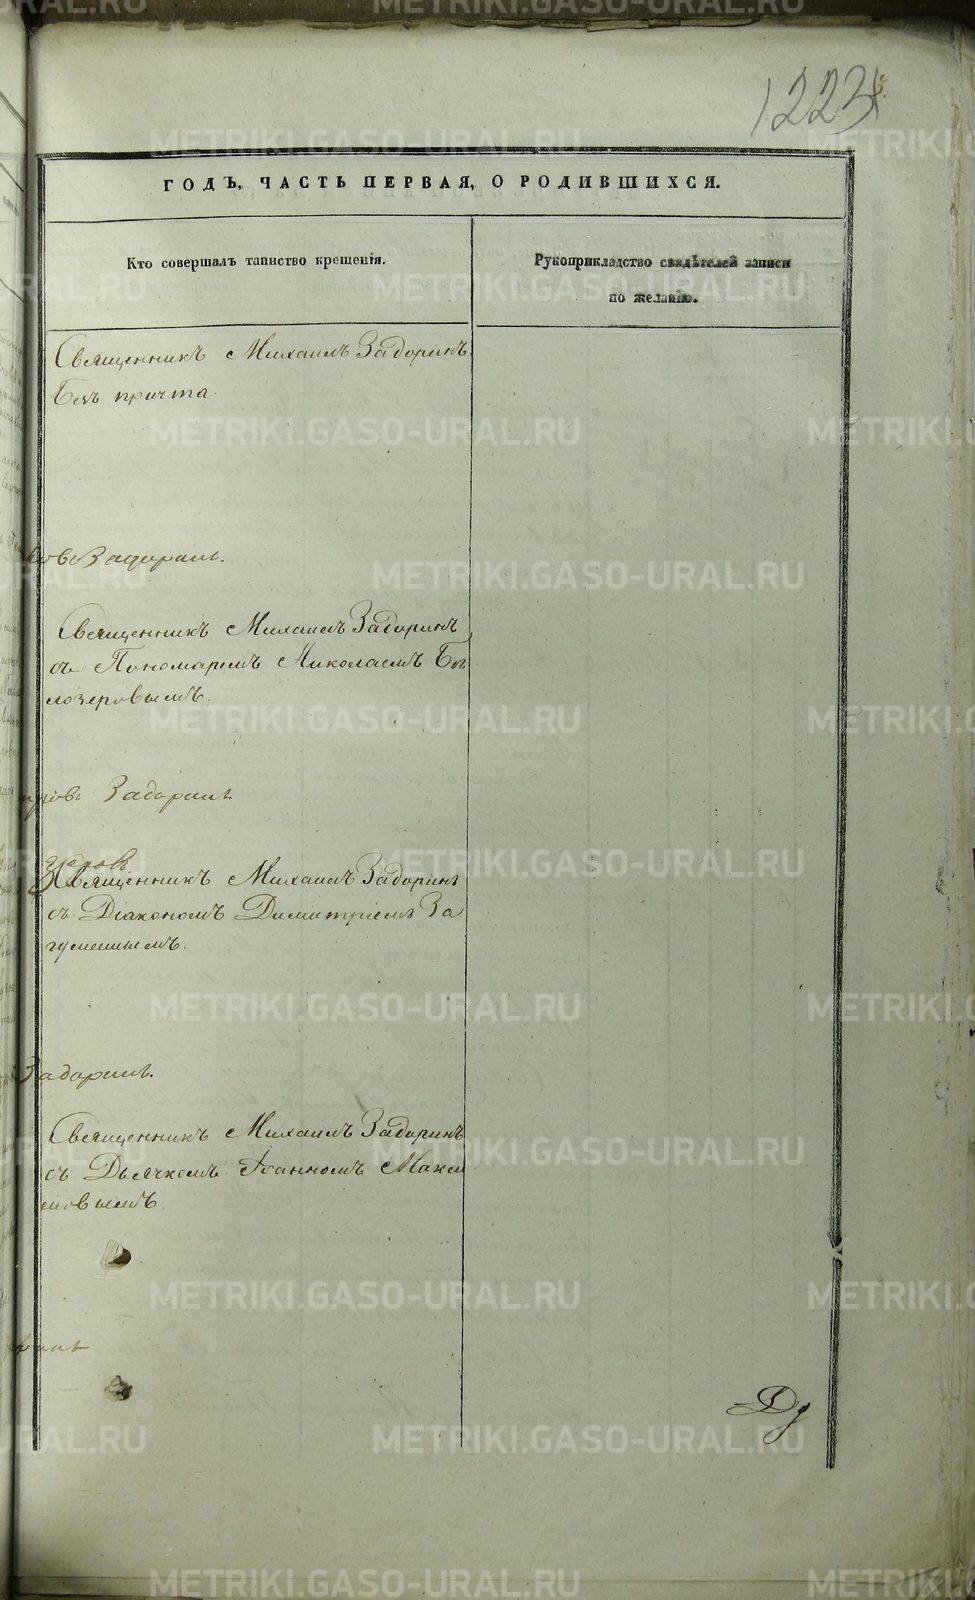 1223
ГОДЪ, ЧАСТЬ ПЕРВАЯ, О РОДИВШИХСЯ.
Кто совершалъ таинство крещенія.
Рукоприкладство свидѣтелей записи
по желанію.
Священникъ Михаилъ Задоринъ
безъ причта.
Задоринъ.
Священникъ Михаилъ Задоринъ
съ Пономаремъ Николаемъ Бѣ
лозеровымъ.
Задоринъ
Священникъ Михаилъ Задоринъ
съ Діакономъ Димитріемъ За
гуменнымъ.
Задоринъ.
Священникъ Михаилъ Задоринъ
съ Дьячкомъ Іоанномъ Макси
мовымъ
METRIKI.GASO-URAL.RU